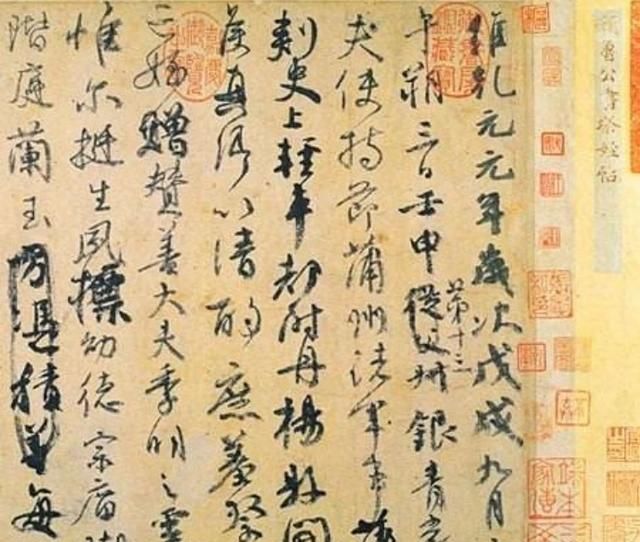 顏魯公書祭姪帖
維乾元元年歲次戊戌九月
午朔三日壬申第十三從父叔銀青光
夫使持節蒲州諸軍事蒲
刺史上輕車都尉丹楊縣開
侯真卿以清酌庶羞祭
亡姪贈贊善大夫季明之靈
惟爾挺生夙標幼德宗廟瑚
階庭蘭玉方憑積善每